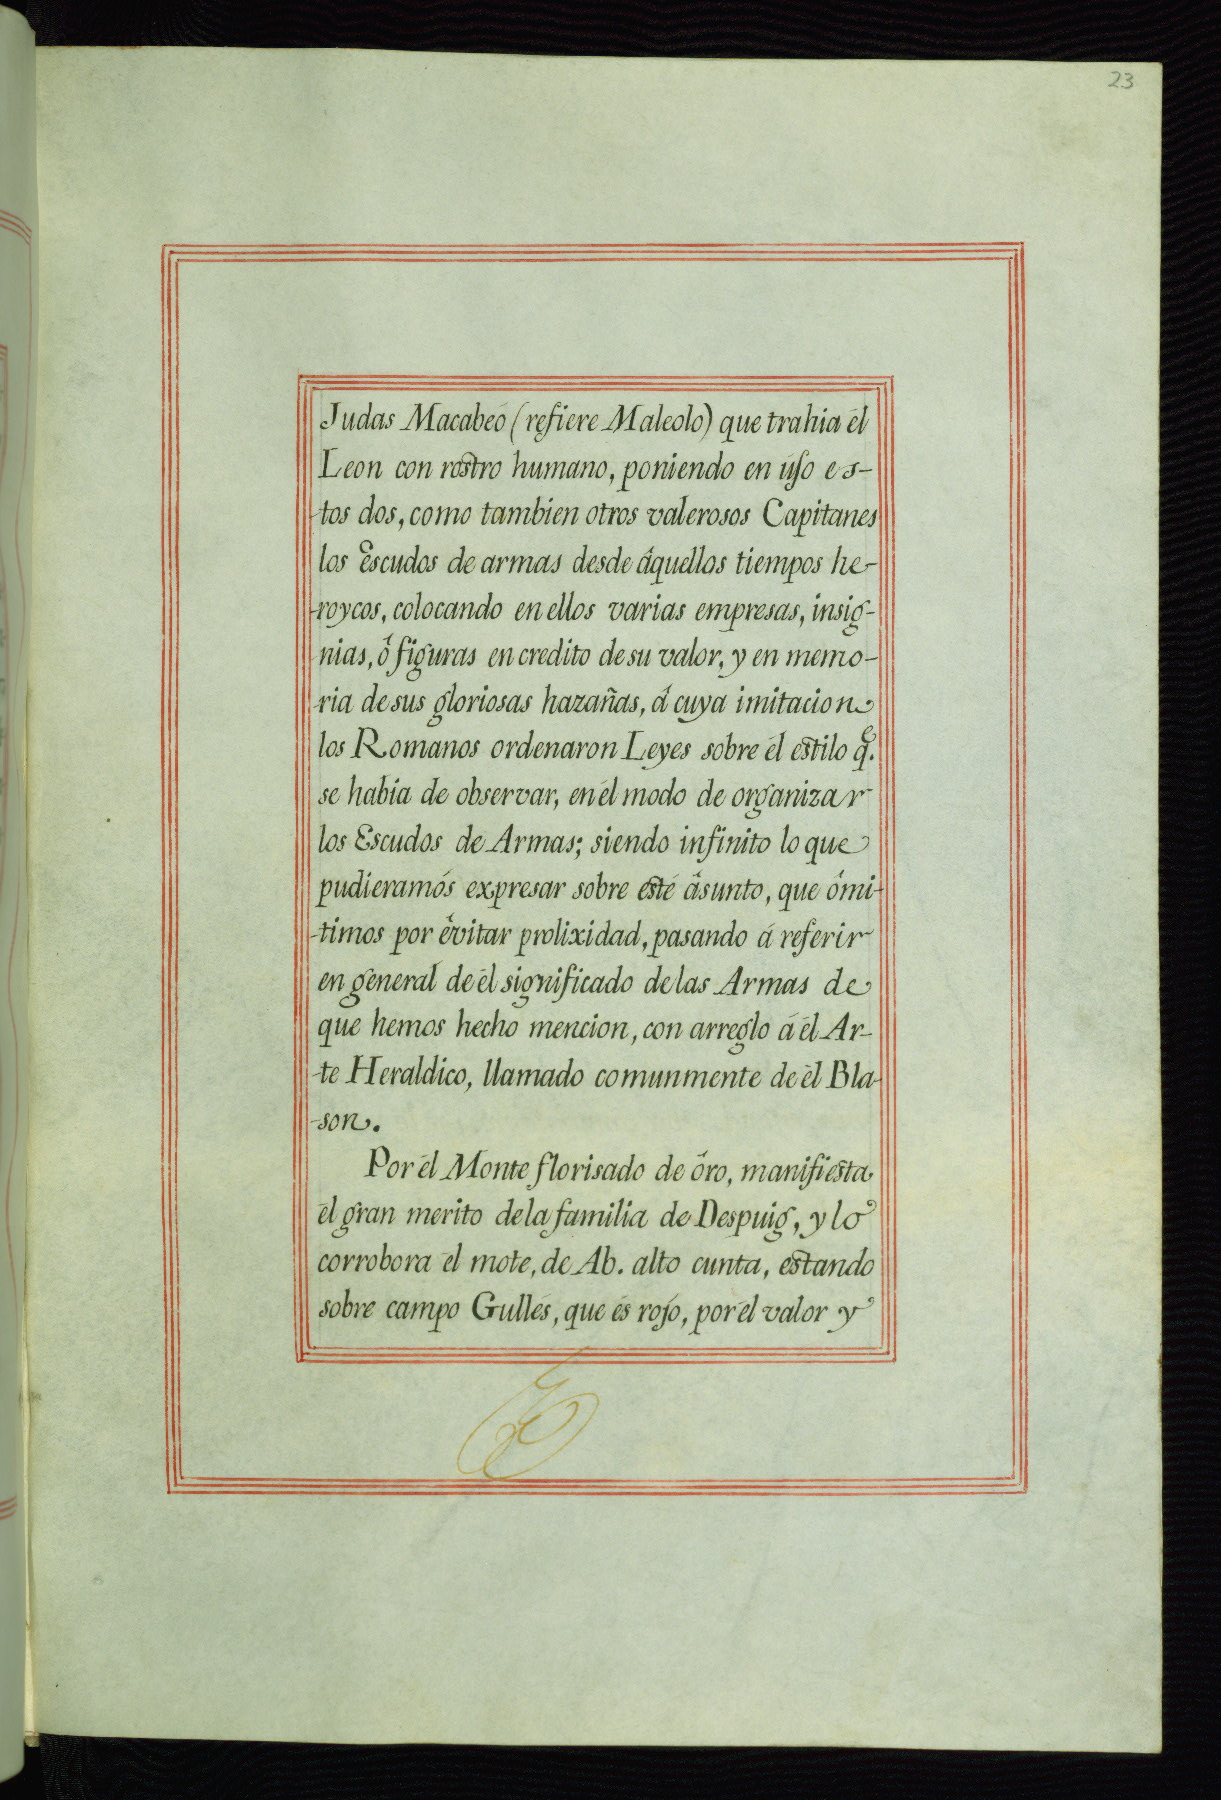 23
Judas Macabeó (refiere Maleolo) que trahia él
Leon con rostro humano, poniendo en úso es-
-tos dos, como tambien otros valerosos Capitanes
los Escudos de armas desde áquellos tiempos he-
-roycos, colocando en ellos varias empresas, insig-
-nias, ó figuras en credito de su valor, y en memo-
-ria de sus gloriosas hazañas, á cuya imitacion
los Romanos ordenaron Leyes sobre él estilo q.e
se habia de observar, en él modo de organizar
los Escudos de Armas; siendo infinito lo que
pudieramós expresar sobre esté ásunto, que ómi-
-timos por évitar prolixidad, pasando á referir
en general de él significado de las Armas de
que hemos hecho mencion, con arreglo á él Ar-
-te Heraldico, llamado comunmente de él Bla-
-son.
Por él Monte florisado de óro, manifiesta
él gran merito de la familia de Despuig, y lo
corrobora él mote, de Ab. alto cunta, estando
sobre campo Gullés, que és rojo, por él valor y